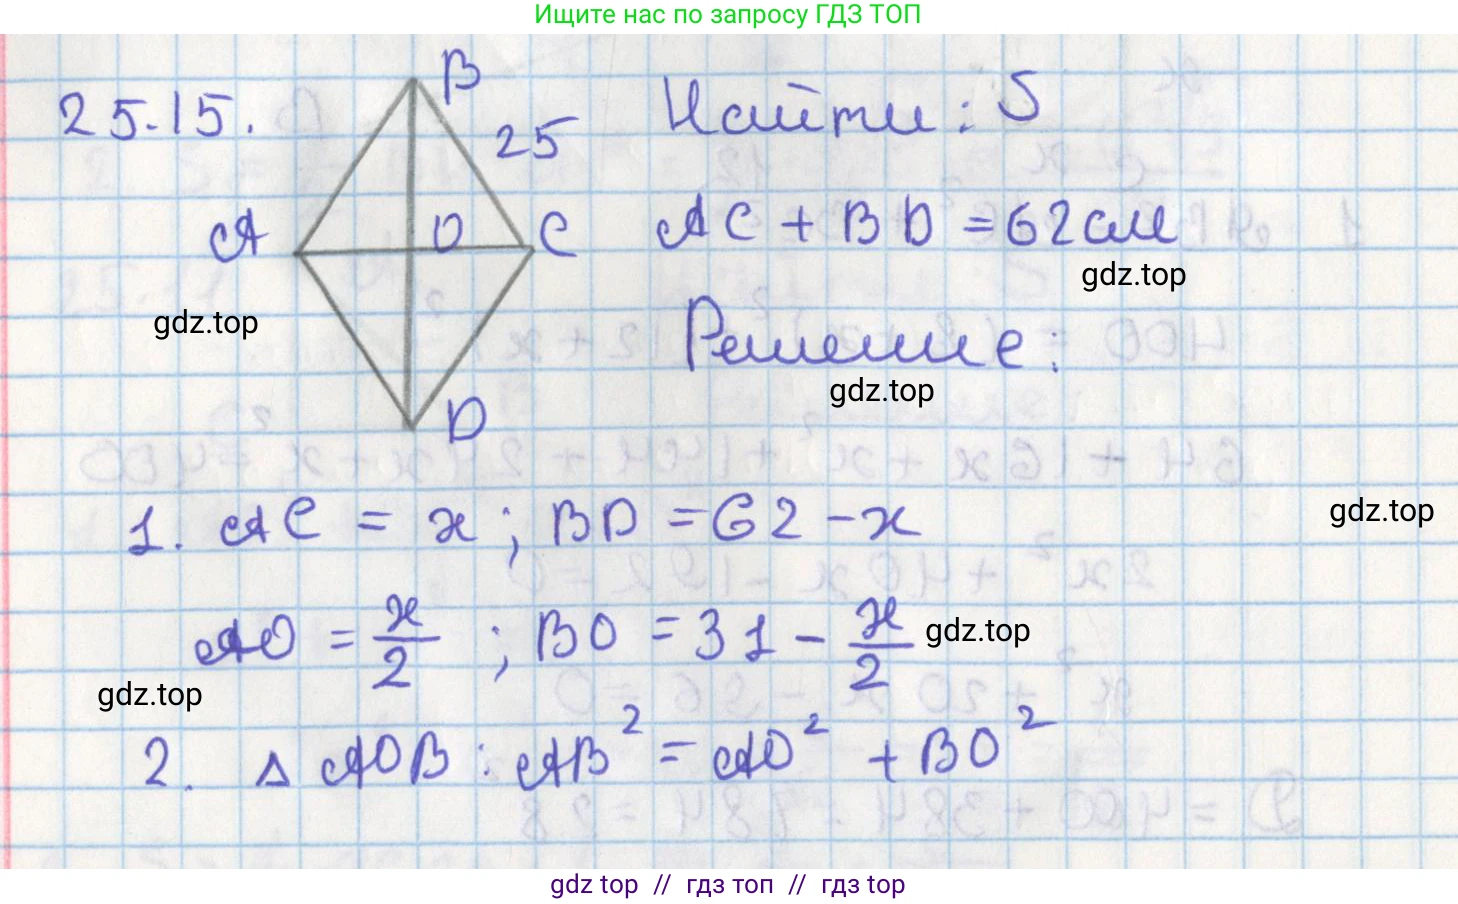 Ищите нас по запросу ГДЗ ТОП
25.15.
B
25
A
O
C
D
Найти: S
AC + BD = 62см
gdz.top
gdz.top
Решение:
gdz.top
1. AC = x ; BD = 62 - x
gdz.top
AO = x/2 ; BO = 31 - x/2
gdz.top
gdz.top
2. Δ AOB : AB² = AO² + BO²
gdz top // гдз топ // gdz top